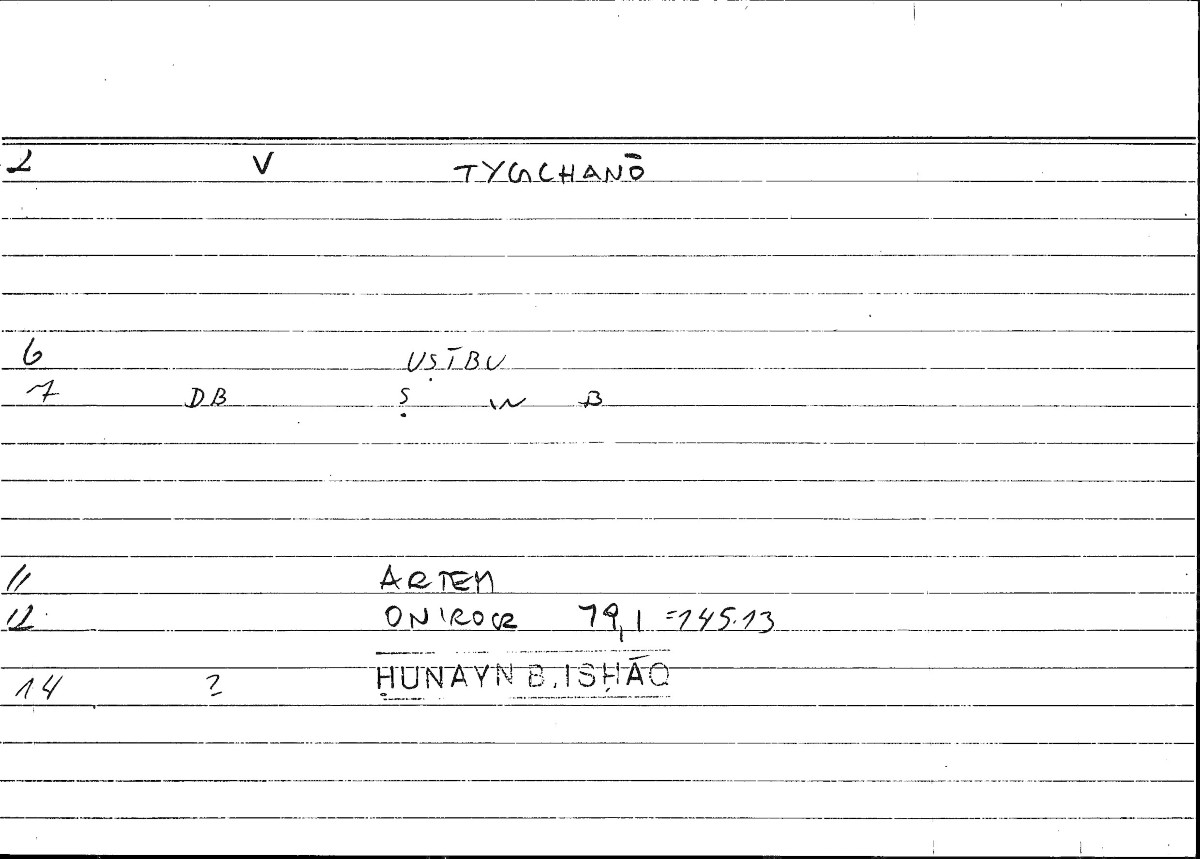 2 V TYGCHANŌ
6 UṢĪBU
7 DB Ṣ W B
11 ARTEM
12 ONIROCR 79,1 =145.13
14 ? ḤUNAYN B. ISḤĀQ